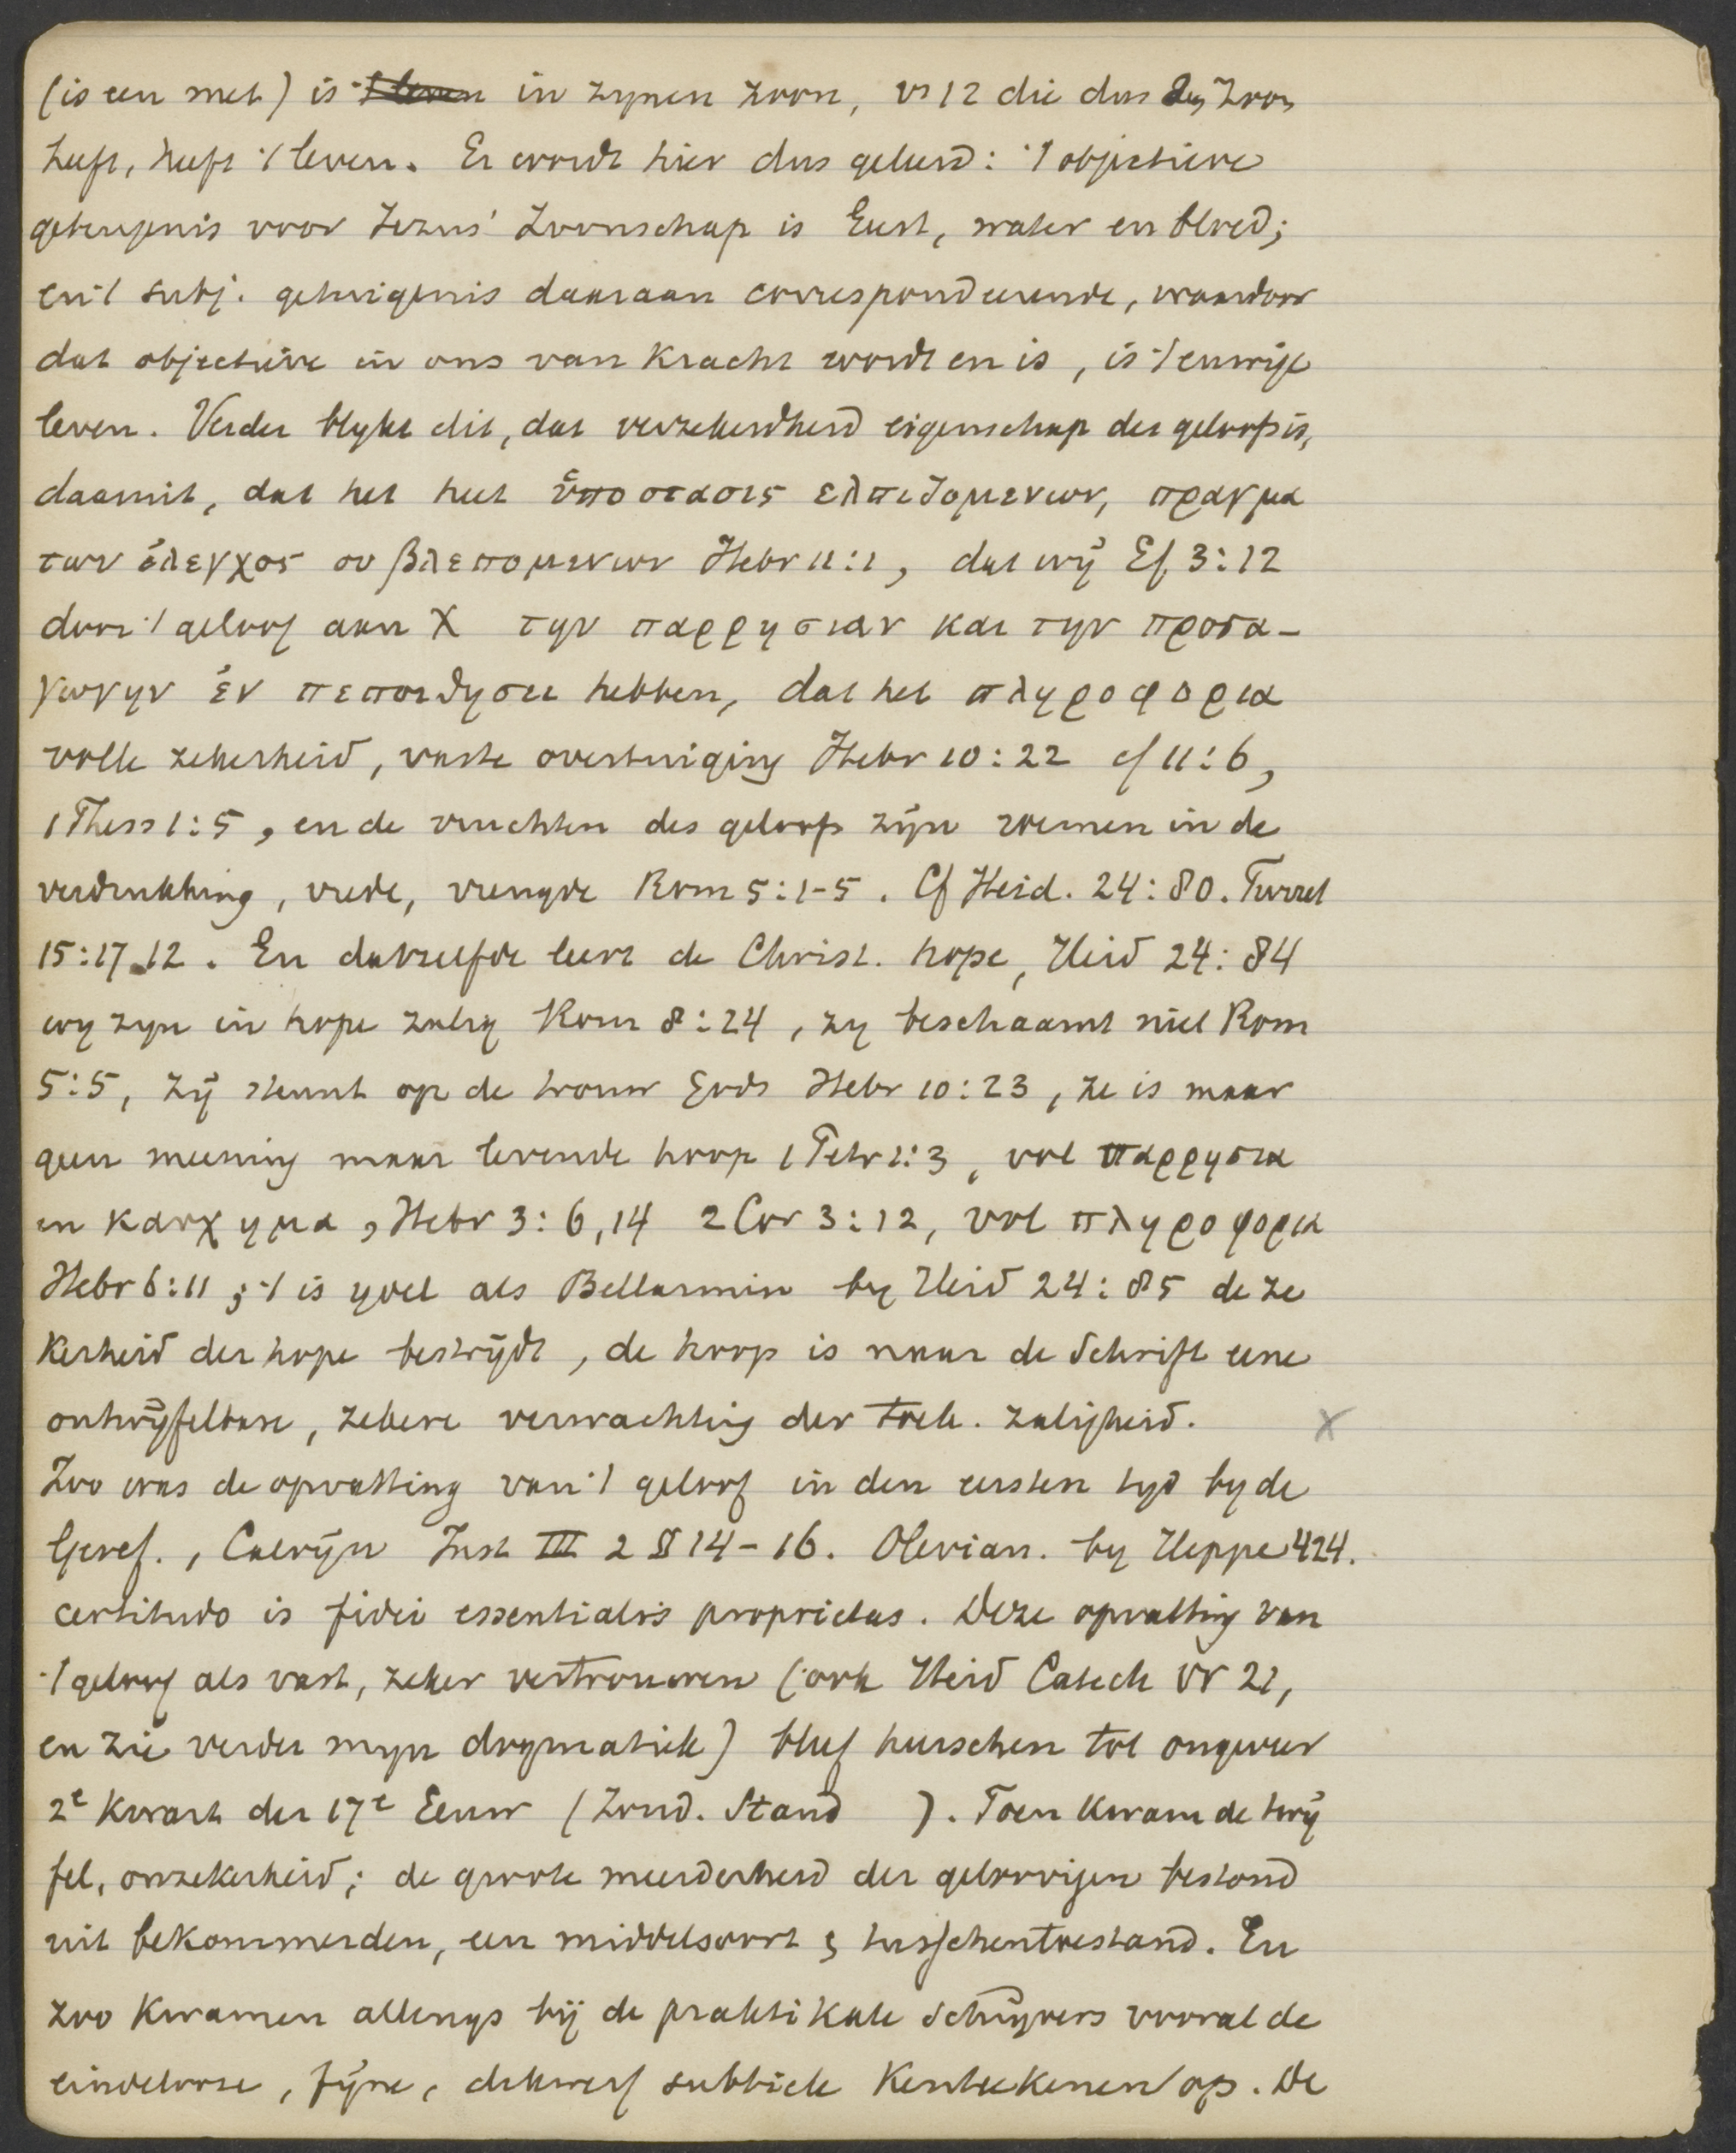 (is een met) is 't leven in zynen zoon, vs 12 die dus den Zoon
heeft, heeft 't leven. Er wordt hier dus geleerd: 't objectieve
getuigenis voor Jezus' Zoonschap is Geest, water en bloed;
en 't subj. getuigenis daaraan correspondeerende, waardoor
dat objectieve in ons van kracht wordt en is, is 't eeuwige
leven. Verder blykt dit, dat verzekerdheid eigenschap des geloofs is,
daaruit, dat het heet ὑποστασις ελπιζομενων, πραγμα
των ἐλεγχος ου βλεπομενων Hebr 11:1, dat wij Ef 3:12
door 't geloof aan X την παρρησιαν και την προσα-
γωγην ἐν πεποιθησει hebben, dat het πληροφορια
volle zekerheid, vaste overtuiging Hebr 10:22 cf 11:6,
1 Thess 1:5, en de vruchten des geloofs zijn roemen in de
verdrukking, vrede, vreugde Rom 5:1-5. Cf Heid. 24:80. Turret
15:17.12. En datzelfde leert de Christ. hope, Heid 24:84
wy zyn in hope zalig Rom 8:24, zy beschaamt niet Rom
5:5, zij steunt op de trouw Gods Hebr 10:23, ze is maar
geen meening maar levende hoop 1 Petr 1:3, vol παρρησια
en καυχημα, Hebr 3:6,14 2 Cor 3:12, vol πληροφορια
Hebr 6:11; 't is ydel als Bellarmin by Heid 24:85 de ze
kerheid der hope bestrijdt, de hoop is naar de Schrift eene
ontwijfelbare, zekere verwachting der toek. zaligheid. X
Zoo was de opvatting van 't geloof in den eersten tyd by de
Geref., Calvijn Inst III 2 § 14-16. Olevian. by Heppe 424.
certitudo is fidei essentialis proprietas. Deze opvatting van
't geloof als vast, zeker vertrouwen (ook Heid Catech Vr 21,
en zie verder myn dogmatiek) bleef heerschen tot ongeveer
2e kwart der 17e Eeuw (Zond. Stand ). Toen kwam de twij
fel, onzekerheid; de groote meerderheid der geloovigen bestond
uit bekommerden, een middelsoort & tusschentoestand. En
zoo kwamen allengs bij de praktikale schrijvers vooral de
eindelooze, fijne, dikwerf subtiele kenteekenen op. De